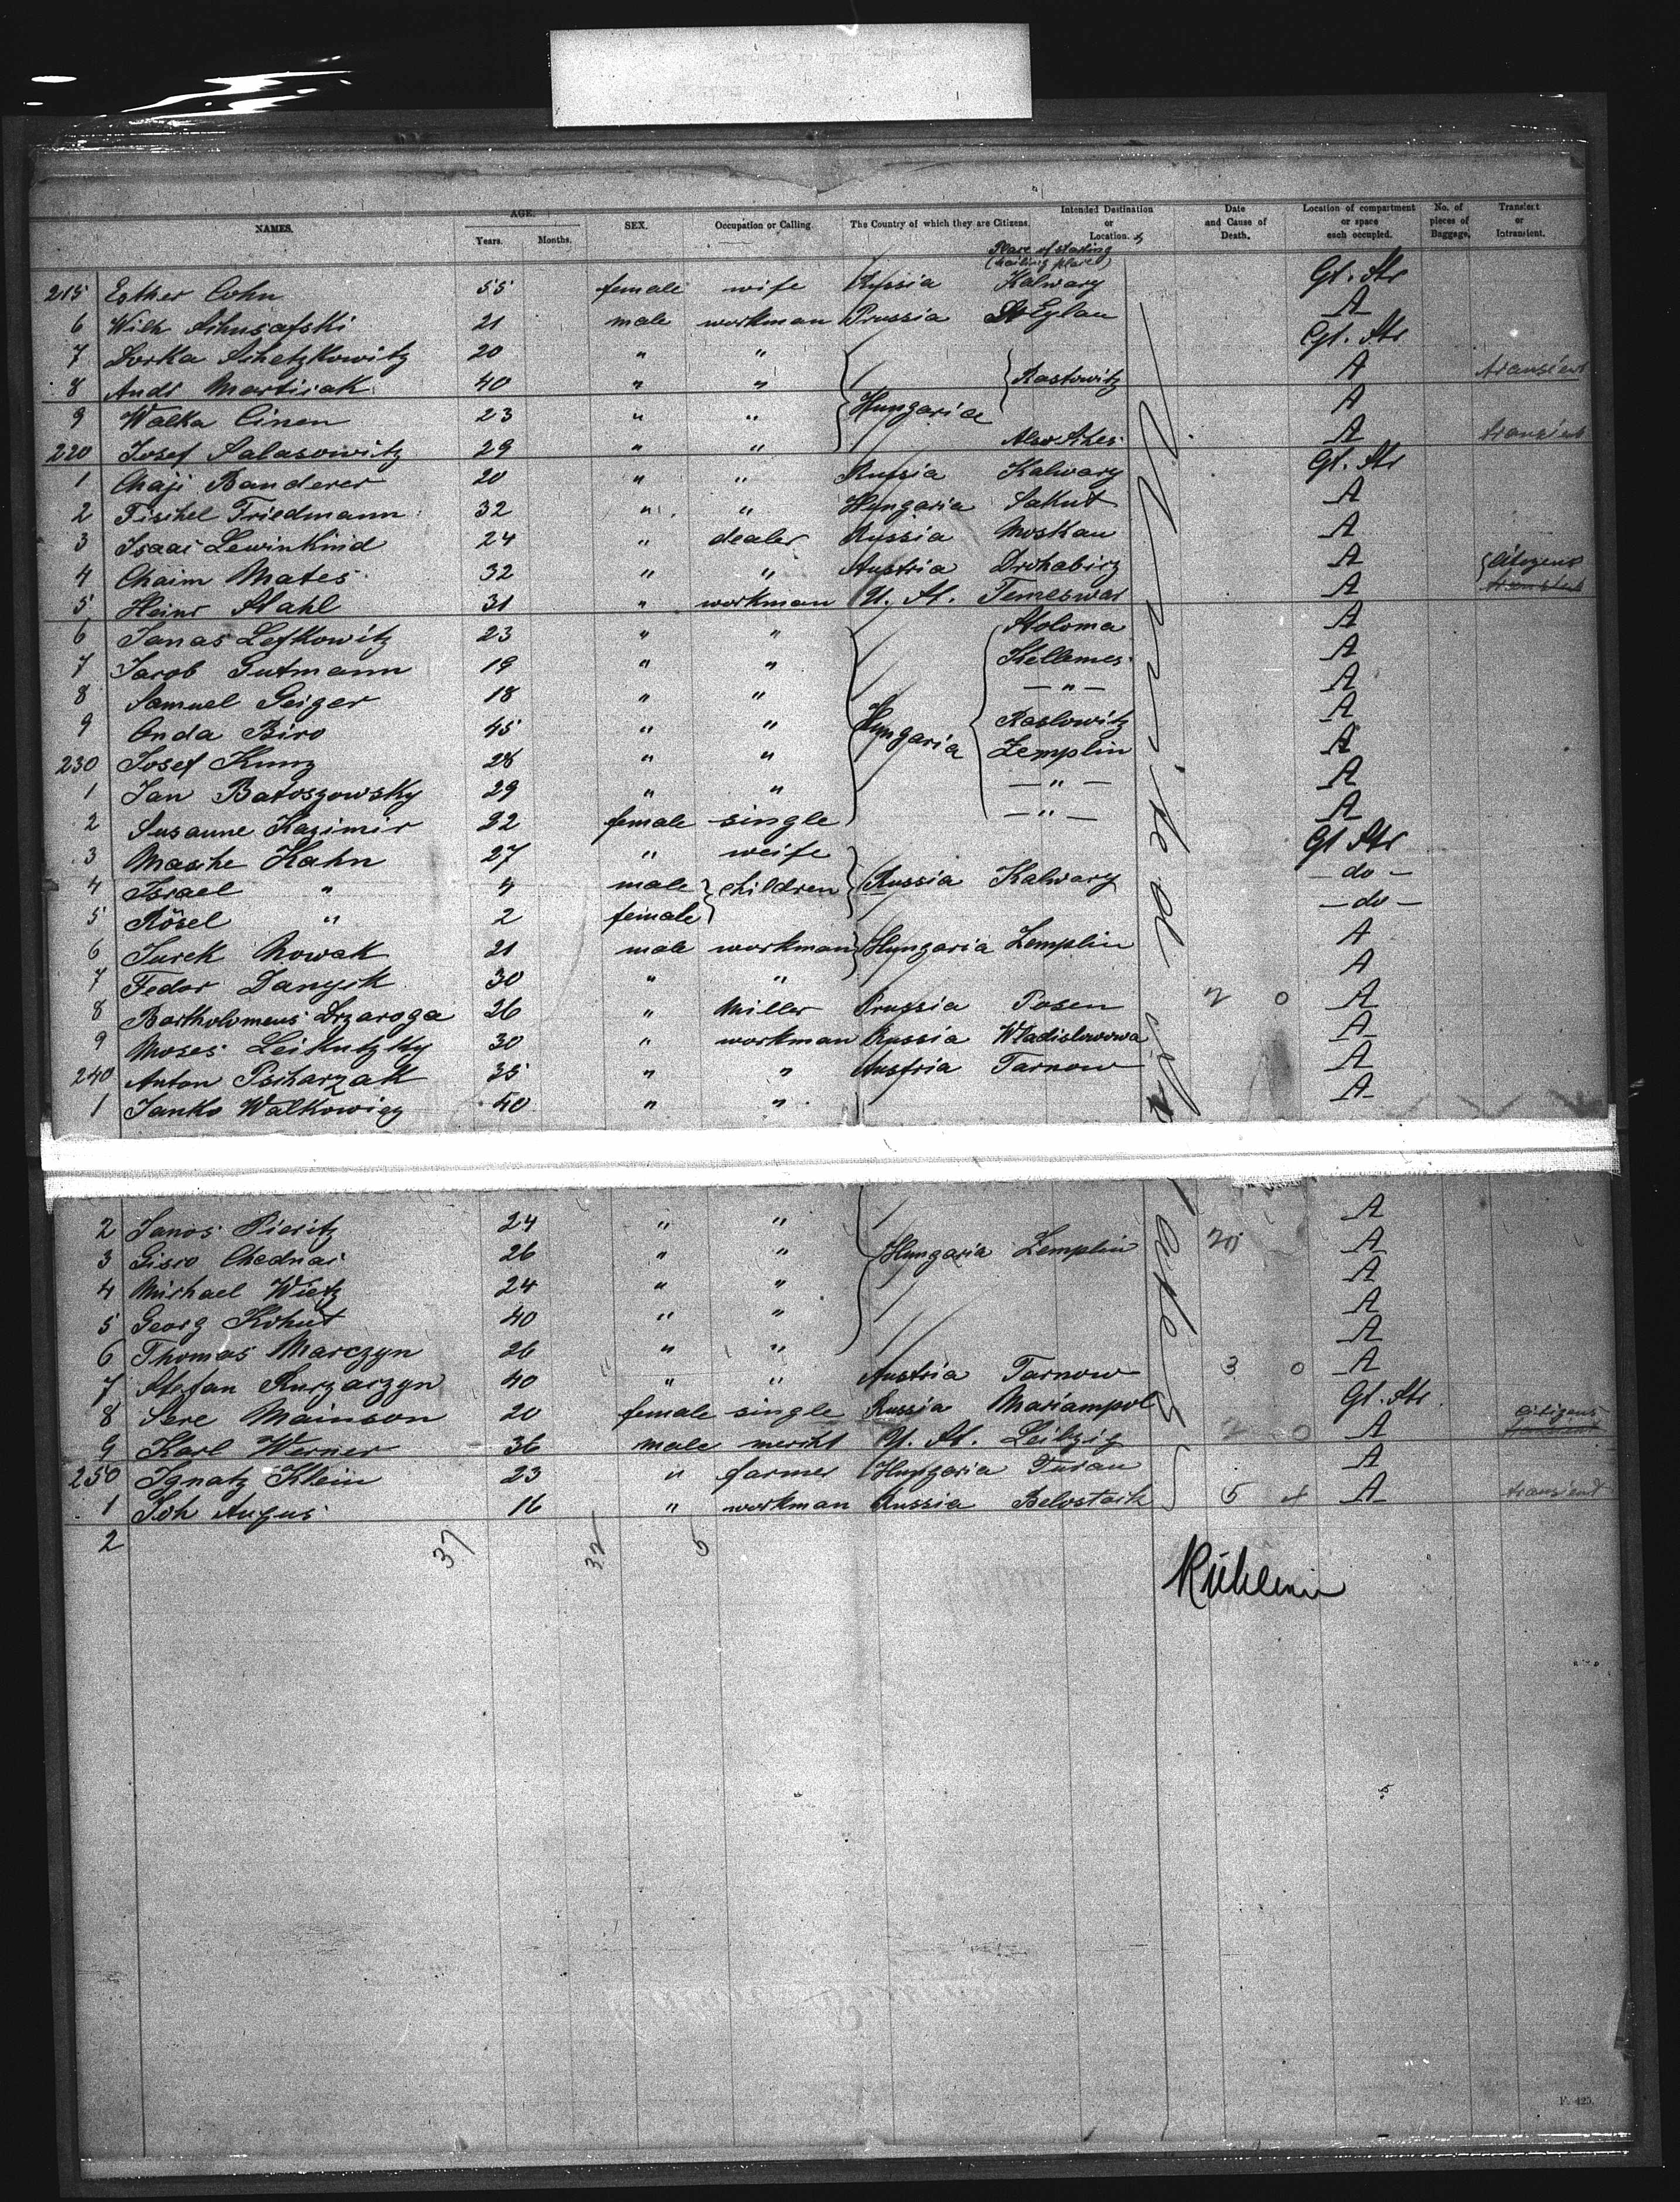 NAMES. AGE. Years. Months. SEX. Occupation or Calling. The Country of which they are Citizens. Intended Destination or Location. Date and Cause of Death. Location of compartment or space each occupied. No. of pieces of Baggage. Transient or Intransient.
Place of starting
215 Esther Cohn 55 female wife Russia Kalwary Gt. Str
6 Wilh 21 male workman Prussia Eylau A
7 Dorka 20 " " Gt. Str
8 Andr Martisak 40 " " Rastowitz A transient
9 Walka Cinen 23 " " Hungaria A
220 Josef Salasowitz 29 " " A transient
1 Chaji Banderer 20 " " Russia Kalwary Gt. Str
2 Fischel Friedmann 32 " " Hungaria Sakut A
3 Isaac Lewinkind 24 " dealer Russia Moskau A
4 Chaim Mates 32 " " Austria Drohabicz A citizens
5 Heinr Stahl 31 " workman U. St. Temeswar A
6 Janas Lefkowitz 23 " " Stoloma A
7 Jacob Gutmann 19 " " Kellemes A
8 Samuel Geiger 18 " " — " — A
9 Onda Biro 45 " " Hungaria Raslowitz A
230 Josef Kunz 28 " " Zemplin A
1 Jan Batoszowsky 29 " " — " — A
2 Susanne Kazimir 22 female single — " — A
3 Masche Kahn 27 " weife Gt Str
4 Israel " 4 male children Russia Kalwary — do —
5 Rösel " 2 female — do —
6 Jurek Nowak 21 male workman Hungaria Zemplin A
7 Fedor Danysk 30 " " A
8 Bartholomeus Drzaroga 26 " Miller Prussia Posen 2 0 A
9 Moses Leikutzky 30 " workman Russia Wladislowowa A
240 Anton Pscharzak 35 " " Austria Tarnow A
1 Janko Walkowicz 40 " " A
2 Janos Pieritz 24 " " A
3 Gisro Chednar 26 " " Hungaria Zemplin 20 A
4 Michael Wietz 24 " " A
5 Georg Kohut 40 " " A
6 Thomas Marczyn 26 " " A
7 Stefan Kurzarzyn 40 " " Austria Tarnow 3 0 A
8 Sere Mainson 20 female single Russia Mariampol Gt. Str
9 Karl Werner 36 male mercht U. St. Leibzig 2 0 A citizens
250 Ignatz Klein 23 " farmer Hungaria Turau A
1 Joh Augus 16 " workman Russia Belostock 5 A transient
2
37 32 5
F. 425.